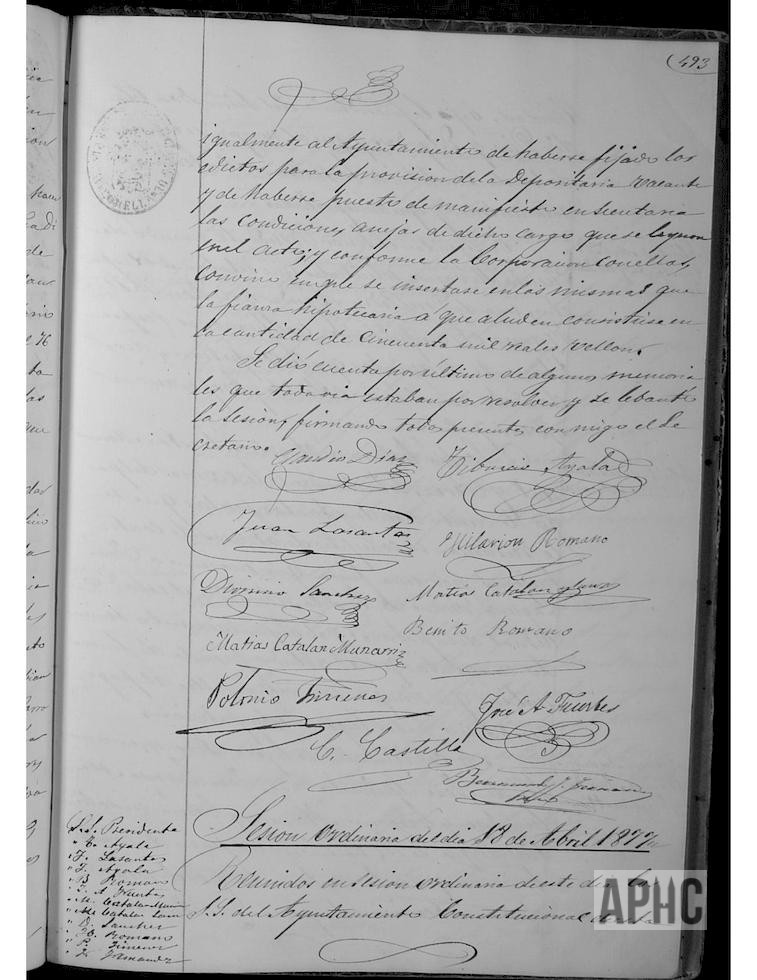 493
igualmente al Ayuntamiento de haberse fijado los
edictos para la provision de la Depositaria vacante
y de haberse puesto de manifiesto en Secretaria
las condiciones anejas de dicho cargo que se leyeron
en el acto; y conforme la Corporacion con ellas,
convino en que se insertase en las mismas que
la fianza hipotecaria a que aluden consistiese en
la cantidad de cincuenta mil reales vellon.
Se dió cuenta por ultimo de algunos memoria
les que todavia estaban por resolver y se lebantó
la sesion, firmando todos presentes, con migo el Se
cretario.
Claudio Diaz
Tiburcio Ayala
Juan Lasantas
Hilarion Romano
Dionisio Sanchez
Matias Catalan
Benito Romano
Matias Catalan Munarriz
Polonio Jimenez
José A Fuertes
C. Castilla
S.S. Presidente
" T. Ayala
" J. Lasantas
" F. Ayala
" B. Romano
" J. A. Fuertes
" M. Catalan Muna
" M. Catalan
" D. Sanchez
" H. Romano
" P. Jimenez
Sesion ordinaria del dia 13 de Abril 1877
Reunidos en sesion ordinaria de este dia los
S.S. del Ayuntamiento Constitucional de esta
APHC